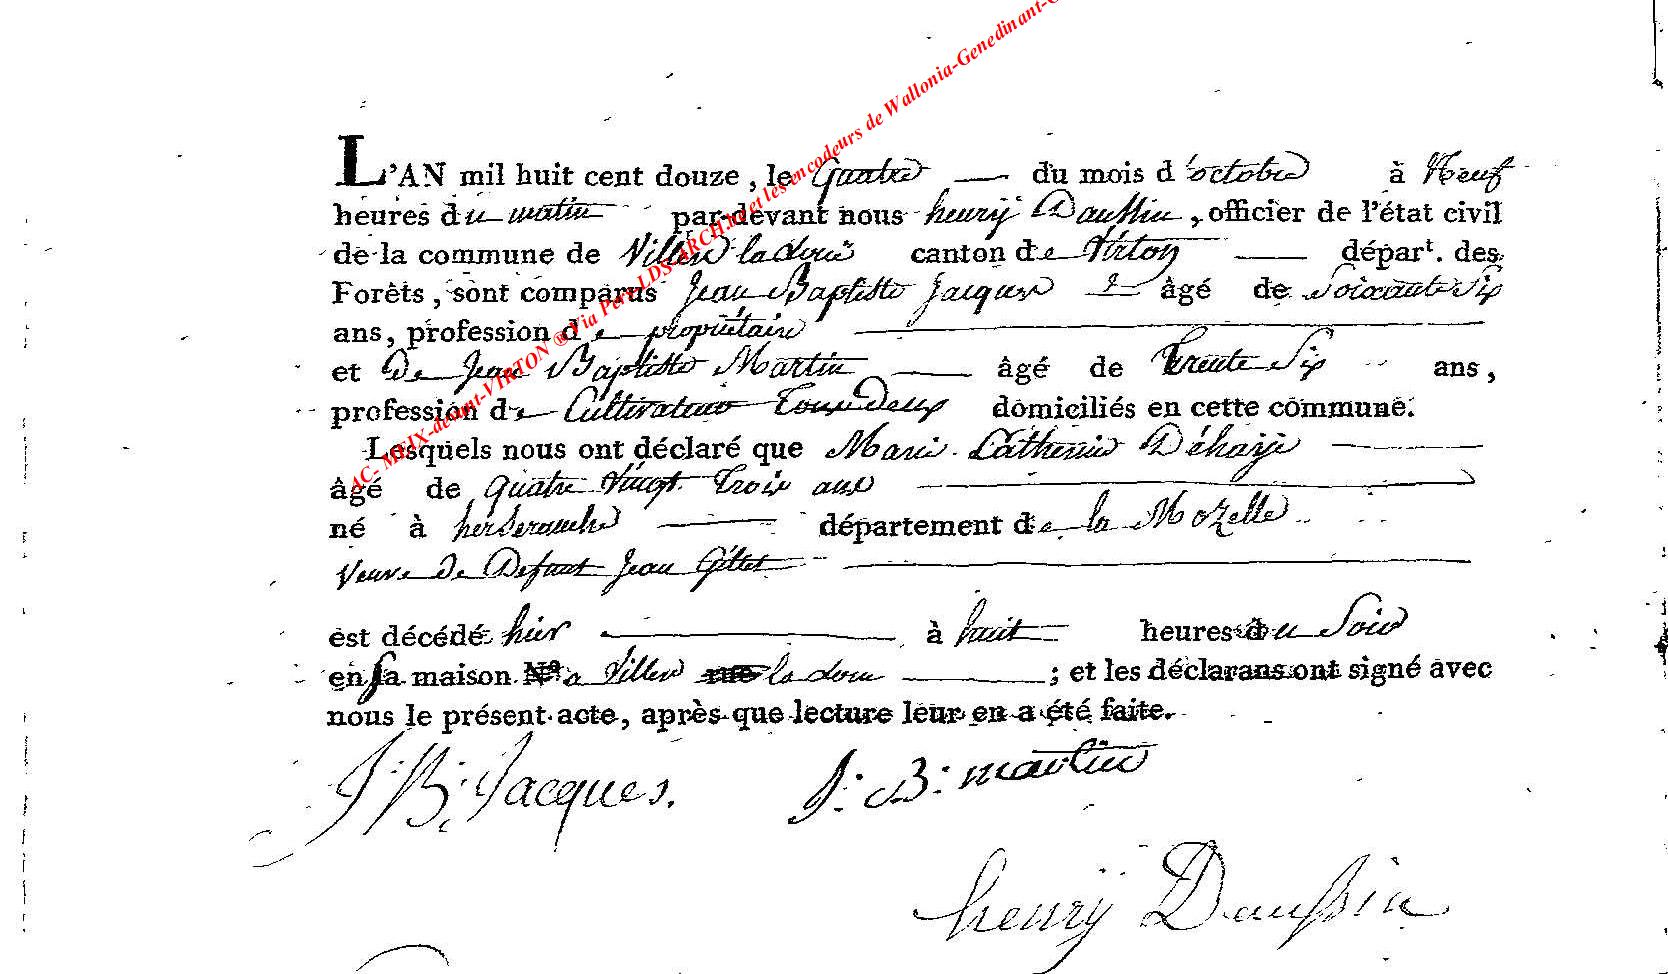 AC- MEIX-devant-VIRTON ® Via Pers-LDS-ARCH.be et les encodeurs de Wallonia-Genedinant-
L'AN mil huit cent douze, le Quatre du mois d'octobre à Neuf
heures du matin par-devant nous henrÿ Daussin, officier de l'état civil
de la commune de Villers la loue canton de Virton départ. des
Forêts, sont comparus Jean Baptiste Jacques âgé de Soixante Six
ans, profession de propriétaire
et De Jean Baptiste Martin âgé de trente Six ans,
profession de Cultivateur Tous Deux domiciliés en cette commune.
Lesquels nous ont déclaré que Marie Catherine Déhaye
âgé de quatre Vingt Trois ans
né à département de la Mozelle
Veuve de Defunt Jean Gillet
est décédé hier à huit heures du Soir
en sa maison N.º a Viller rue la loue ; et les déclarans ont signé avec
nous le présent acte, après que lecture leur en a été faite.
J: B: Jacques. J: B: martin
henrÿ Daussin